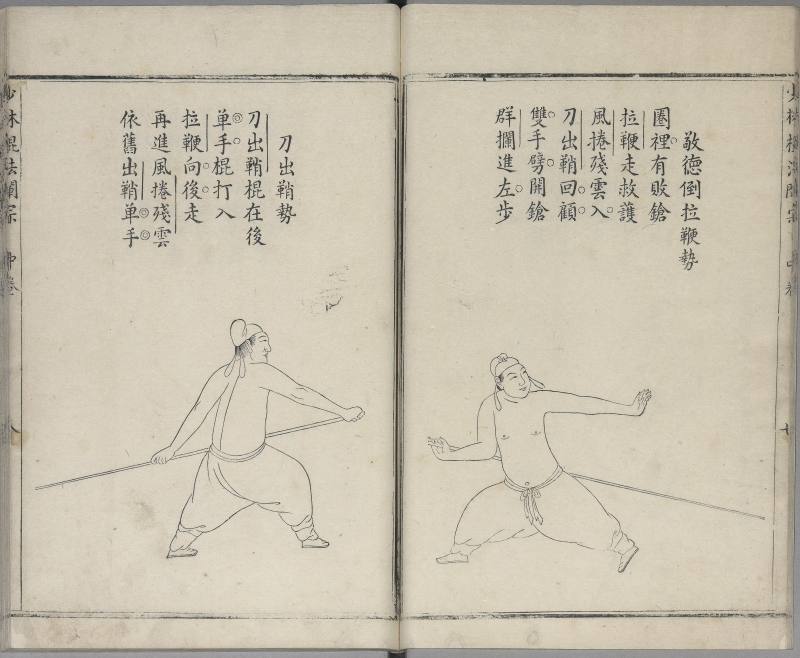 敬德倒拉鞭勢
圈裡有敗鎗
拉鞭走救護
風捲殘雲入
刀出鞘回顧
雙手劈開鎗
群攔進左步
刀出鞘勢
刀出鞘棍在後
单手棍打入
拉鞭向後走
再進風捲殘雲
依舊出鞘单手
少林棍法闡宗
中卷
八